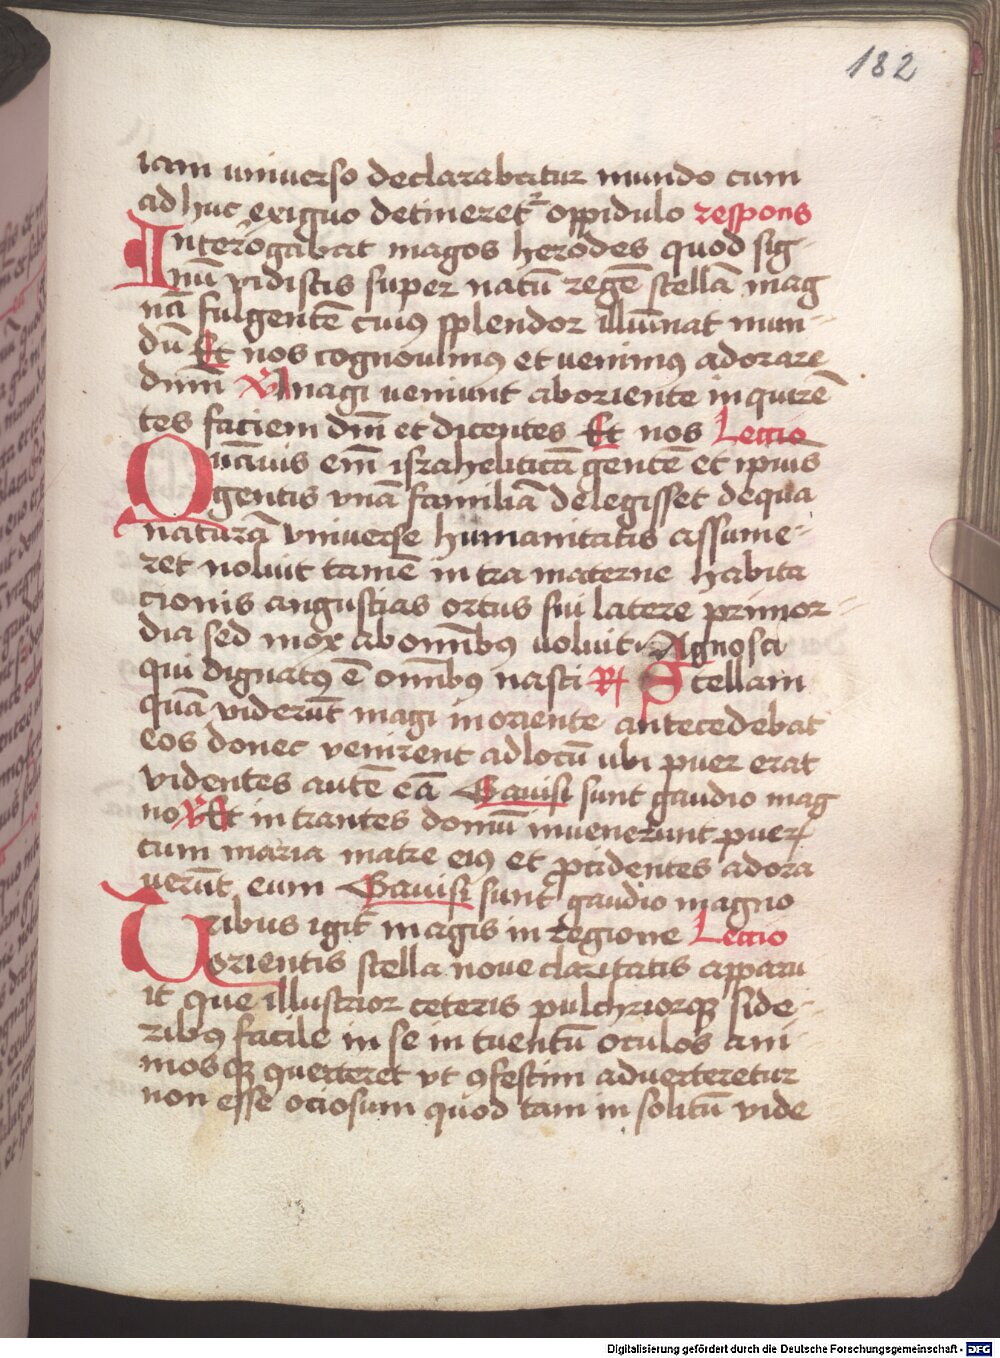 182
iam universo declarabatur mundo cum
ad huc exiguo detineret᷑ oppidulo respons
Interrogabat magos herodes quod sig-
nū vidistis super natū regē stellā mag
nā fulgentē cuiꝰ splendor illūinat mun-
dū Et nos cognovimꝰ et venimꝰ adorare
dnm̄ ℣ Magi veniunt ab oriente in quirē
tes faciem dnī et dicentes Et nos Lectio
Quāvis em̄ israheliticā gentē et ipsius
gentis vnā familiā delegisset de qua
naturā vniverse humanitatis assume-
ret noluit tamē intra materne habita
cionis angustias ortus sui latere primor-
dia sed mox ab omībꝰ voluit Agnosci
qui dignatꝰ ē omībꝰ nasci ℟ Stellam
quā viderūt magi in oriente antecedebat
eos donec venirent ad locū ubi puer erat
videntes autē eā Gavisi sunt gaudio mag
no ℣ Et intrantes domū invenerunt puerū
cum maria matre eiꝰ et ꝓcidentes adora
verūt eum Gavisi sunt gaudio magno
Tribus igit᷑ magis in regione Lectio
orientis stella nove claritatis apparu
it que illustrior ceteris pulchriorqꝫ side-
ribꝰ facile in se intuentū oculos ani-
mosqꝫ ꝯverteret vt ꝯfestim adverteretur
non esse ociosum quod tam in solitū vide
Digitalisierung gefördert durch die Deutsche Forschungsgemeinschaft - DFG